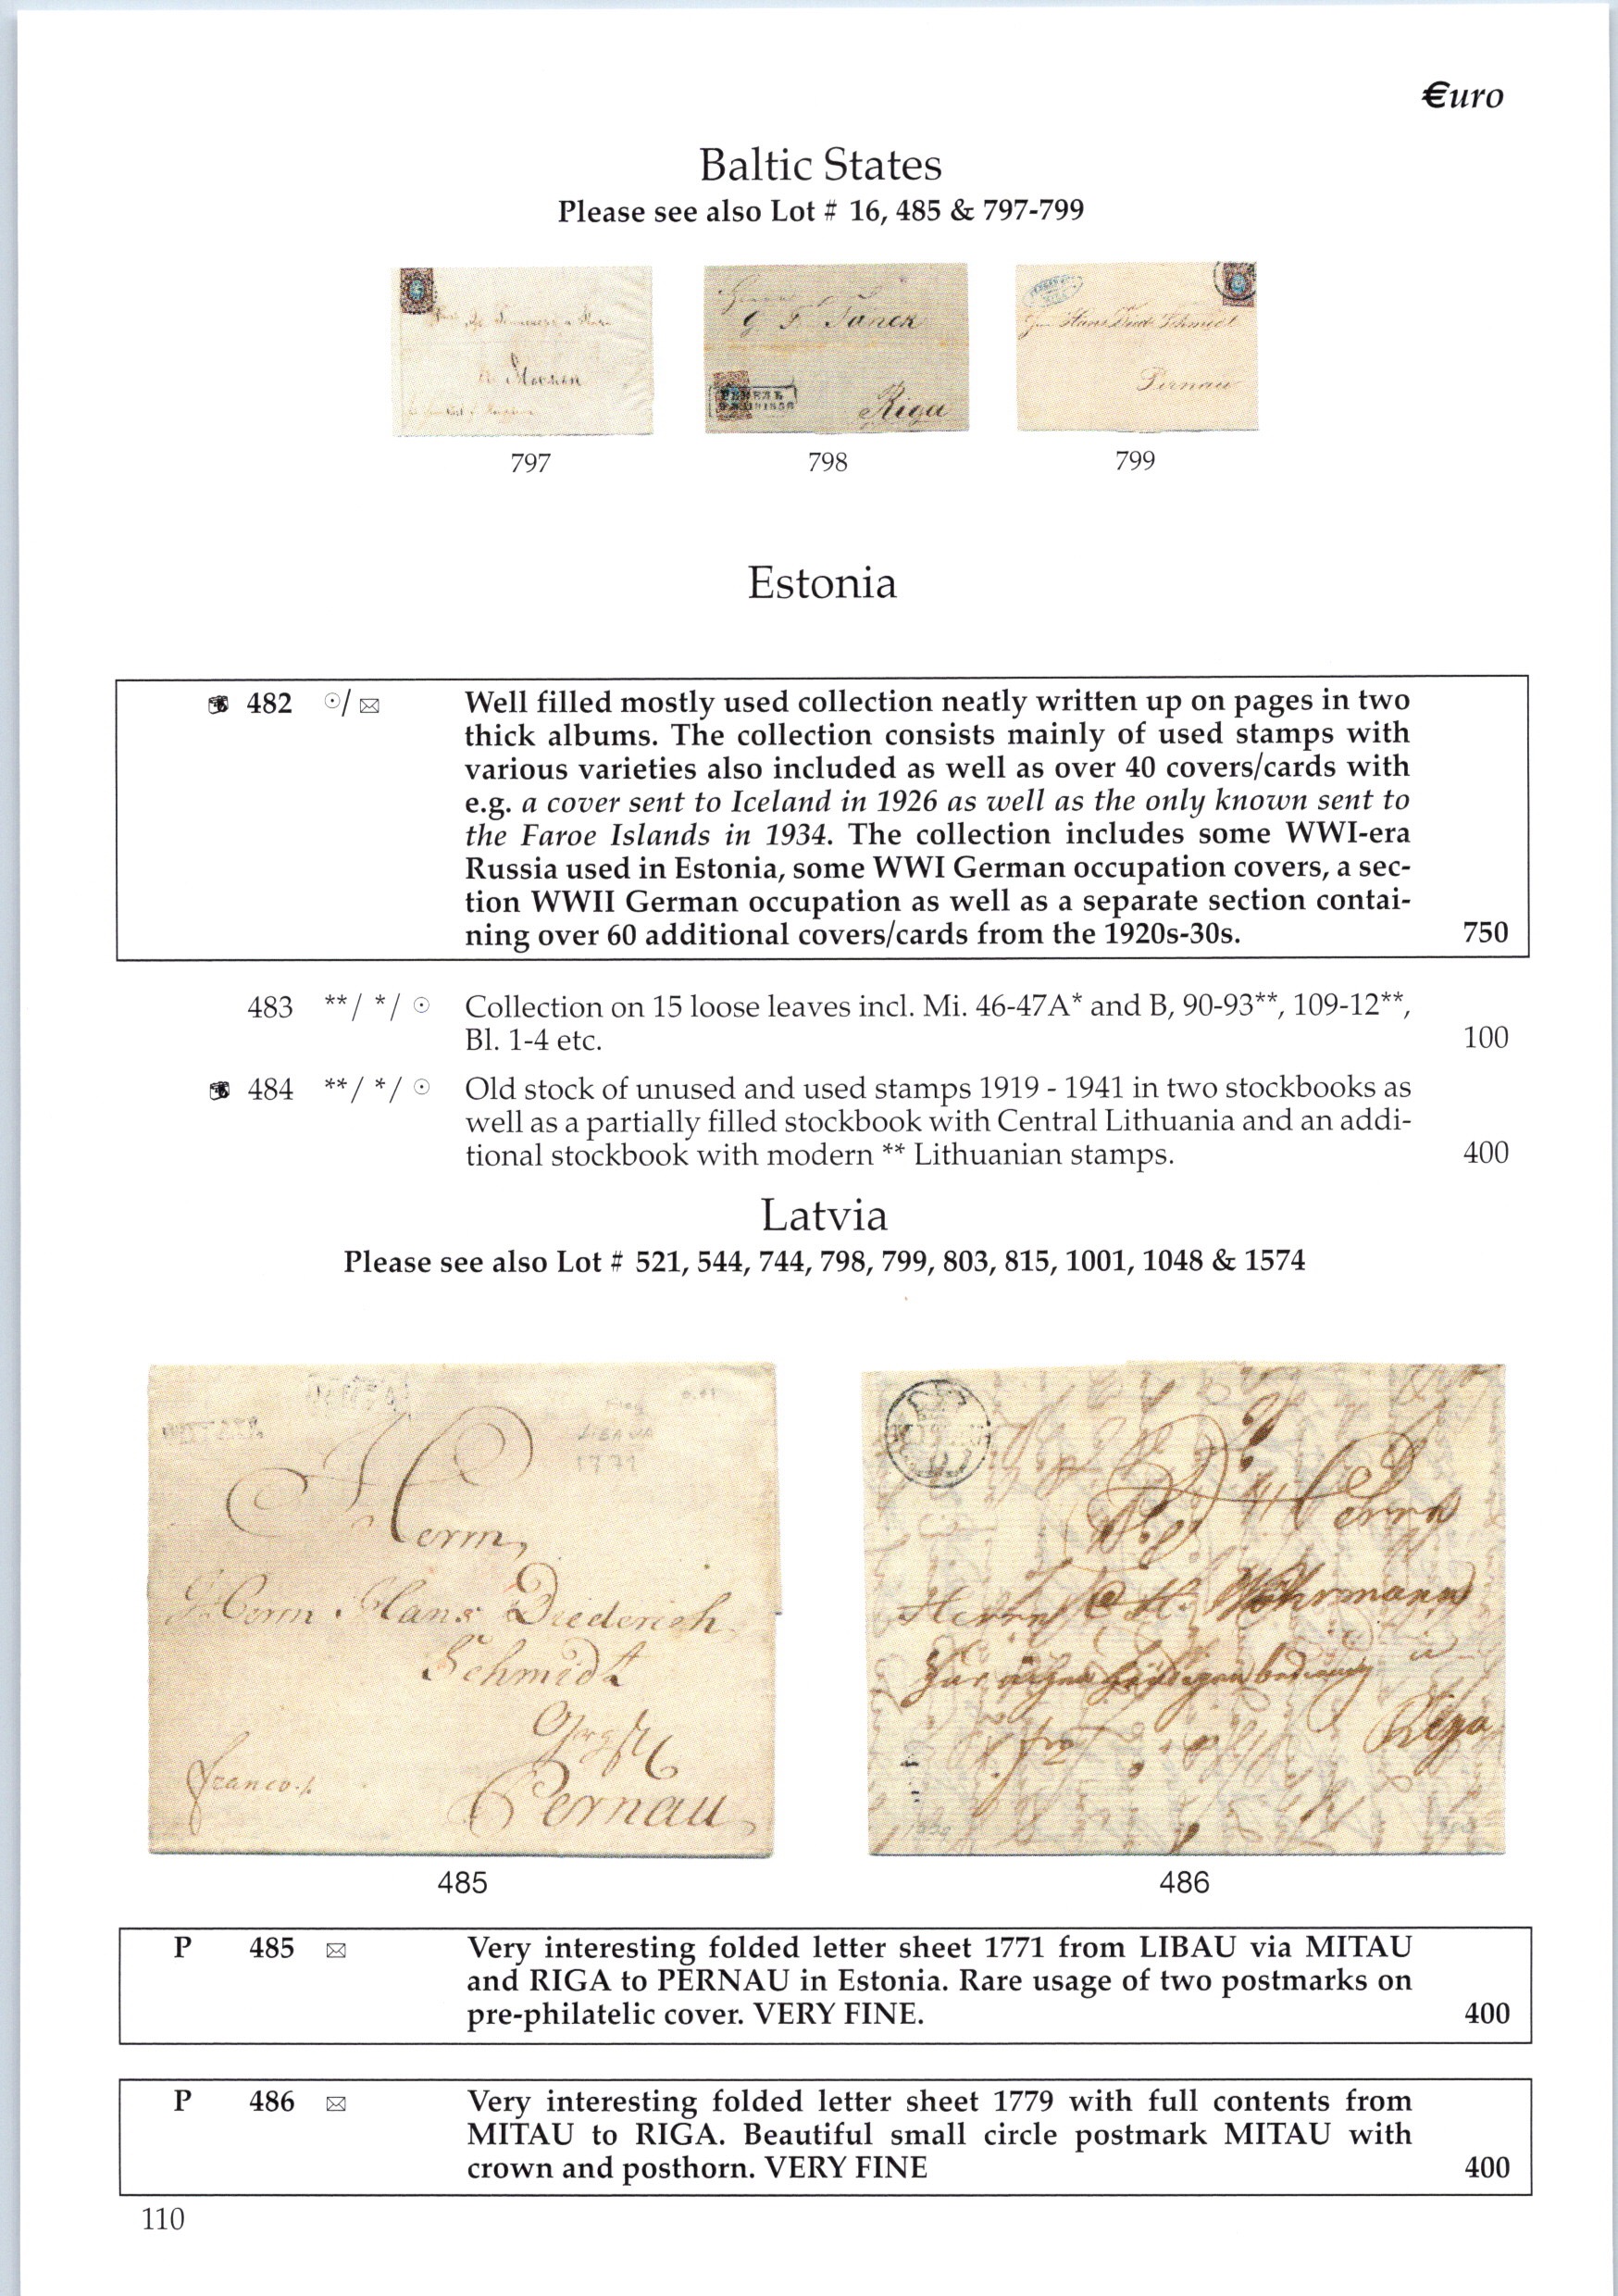 €uro
Baltic States
Please see also Lot # 16, 485 & 797-799
G. F.
Riga
Hans Died. Schmidt
Pernau
797
798
799
Estonia
482 ☉/ ✉ Well filled mostly used collection neatly written up on pages in two
thick albums. The collection consists mainly of used stamps with
various varieties also included as well as over 40 covers/cards with
e.g. a cover sent to Iceland in 1926 as well as the only known sent to
the Faroe Islands in 1934. The collection includes some WWI-era
Russia used in Estonia, some WWI German occupation covers, a sec-
tion WWII German occupation as well as a separate section contai-
ning over 60 additional covers/cards from the 1920s-30s. 750
483 **/ */ ☉ Collection on 15 loose leaves incl. Mi. 46-47A* and B, 90-93**, 109-12**,
Bl. 1-4 etc. 100
484 **/ */ ☉ Old stock of unused and used stamps 1919 - 1941 in two stockbooks as
well as a partially filled stockbook with Central Lithuania and an addi-
tional stockbook with modern ** Lithuanian stamps. 400
Latvia
Please see also Lot # 521, 544, 744, 798, 799, 803, 815, 1001, 1048 & 1574
LIBAVA
1771
Herrn,
Herrn Hans Diederich
Schmidt
Pernau
franco
Herrn
Herrn Wöhrmann
Riga
485
486
P 485 ✉ Very interesting folded letter sheet 1771 from LIBAU via MITAU
and RIGA to PERNAU in Estonia. Rare usage of two postmarks on
pre-philatelic cover. VERY FINE. 400
P 486 ✉ Very interesting folded letter sheet 1779 with full contents from
MITAU to RIGA. Beautiful small circle postmark MITAU with
crown and posthorn. VERY FINE 400
110